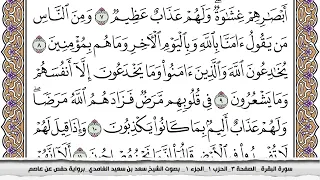 أَبْصَٰرِهِمْ غِشَٰوَةٌ وَلَهُمْ عَذَابٌ عَظِيمٌ ٧ وَمِنَ النَّاسِ
مَن يَقُولُ ءَامَنَّا بِاللَّهِ وَبِالْيَوْمِ الْآخِرِ وَمَا هُم بِمُؤْمِنِينَ ٨
يُخَٰدِعُونَ اللَّهَ وَالَّذِينَ ءَامَنُوا وَمَا يَخْدَعُونَ إِلَّا أَنفُسَهُمْ
وَمَا يَشْعُرُونَ ٩ فِي قُلُوبِهِم مَّرَضٌ فَزَادَهُمُ اللَّهُ مَرَضًا
وَلَهُمْ عَذَابٌ أَلِيمٌ بِمَا كَانُوا يَكْذِبُونَ ١٠ وَإِذَا قِيلَ لَهُمْ
لَا تُفْسِدُوا فِي الْأَرْضِ قَالُوا إِنَّمَا نَحْنُ مُصْلِحُونَ ١١
سورة البقرة . الصفحة ٣ . الحزب ١ . الجزء ١ . بصوت الشيخ سعد بن سعيد الغامدي . برواية حفص عن عاصم